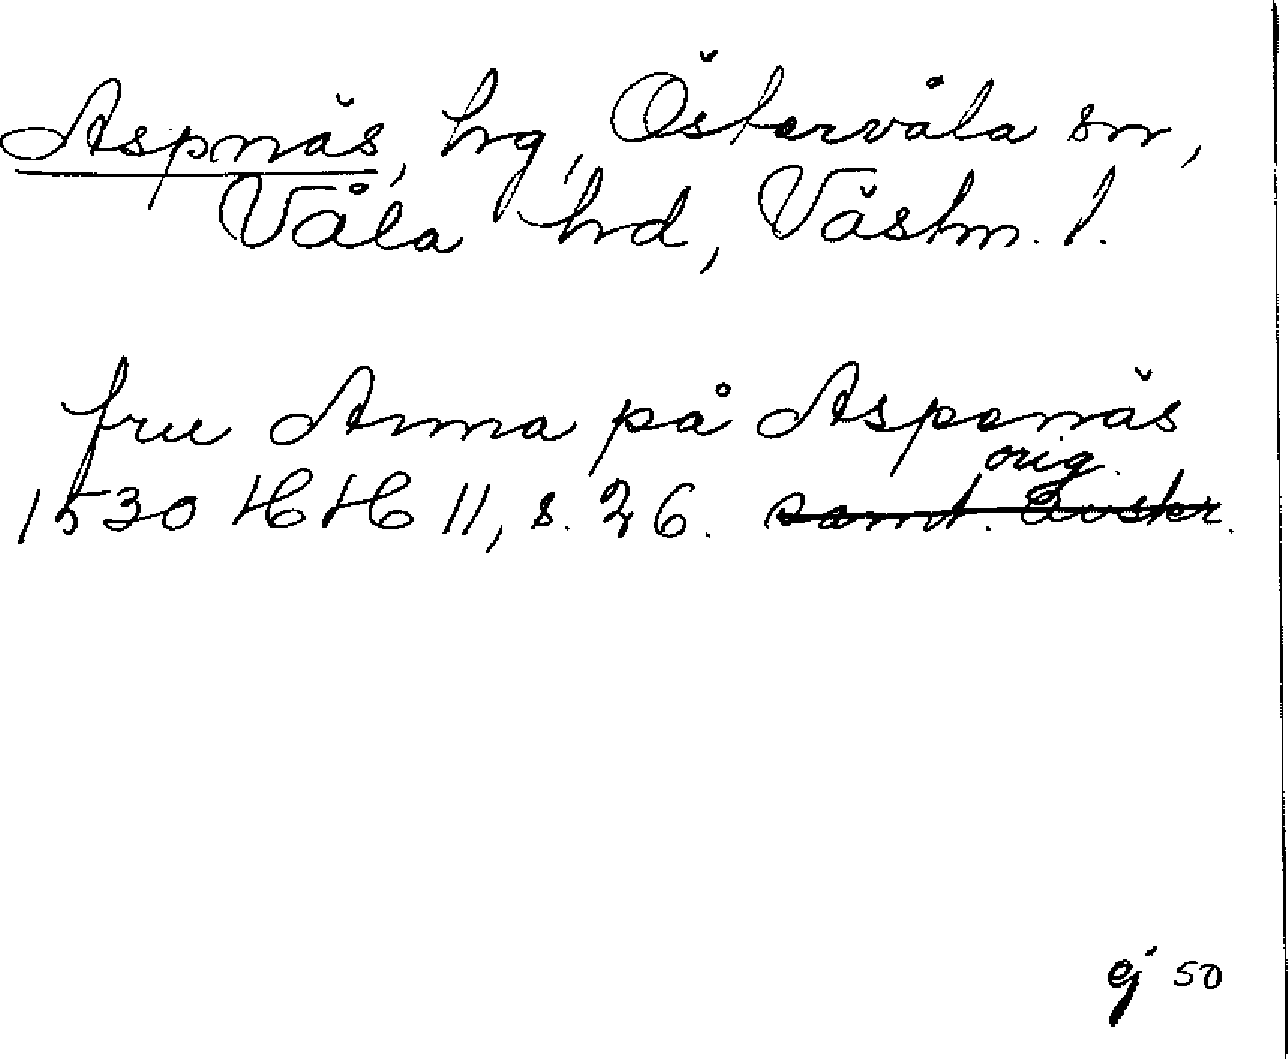 Aspnäs, hg, Östervåla sn,
Våla hd, Västm. l.
fru Anna på Aspenäs
orig.
1530 HH 11, s. 26. samt. avskr.
ej 50